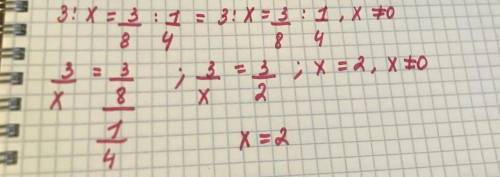 3 : x = 3/8 : 1/4 = 3 : x = 3/8 : 1/4 , x ≠ 0
3/x = (3/8)/(1/4) ; 3/x = 3/2 ; x = 2 , x ≠ 0
x = 2